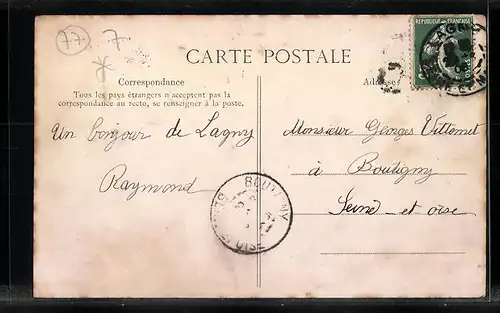 77
7
*
REPUBLIQUE FRANÇAISE
CARTE POSTALE
Correspondance
Tous les pays étrangers n'acceptent pas la
correspondance au recto, se renseigner à la poste.
Un bonjour de Lagny
Raymond
Monsieur Georges
à Boutigny
Seine-et-oise
BOUTIGNY
SEINE ET OISE